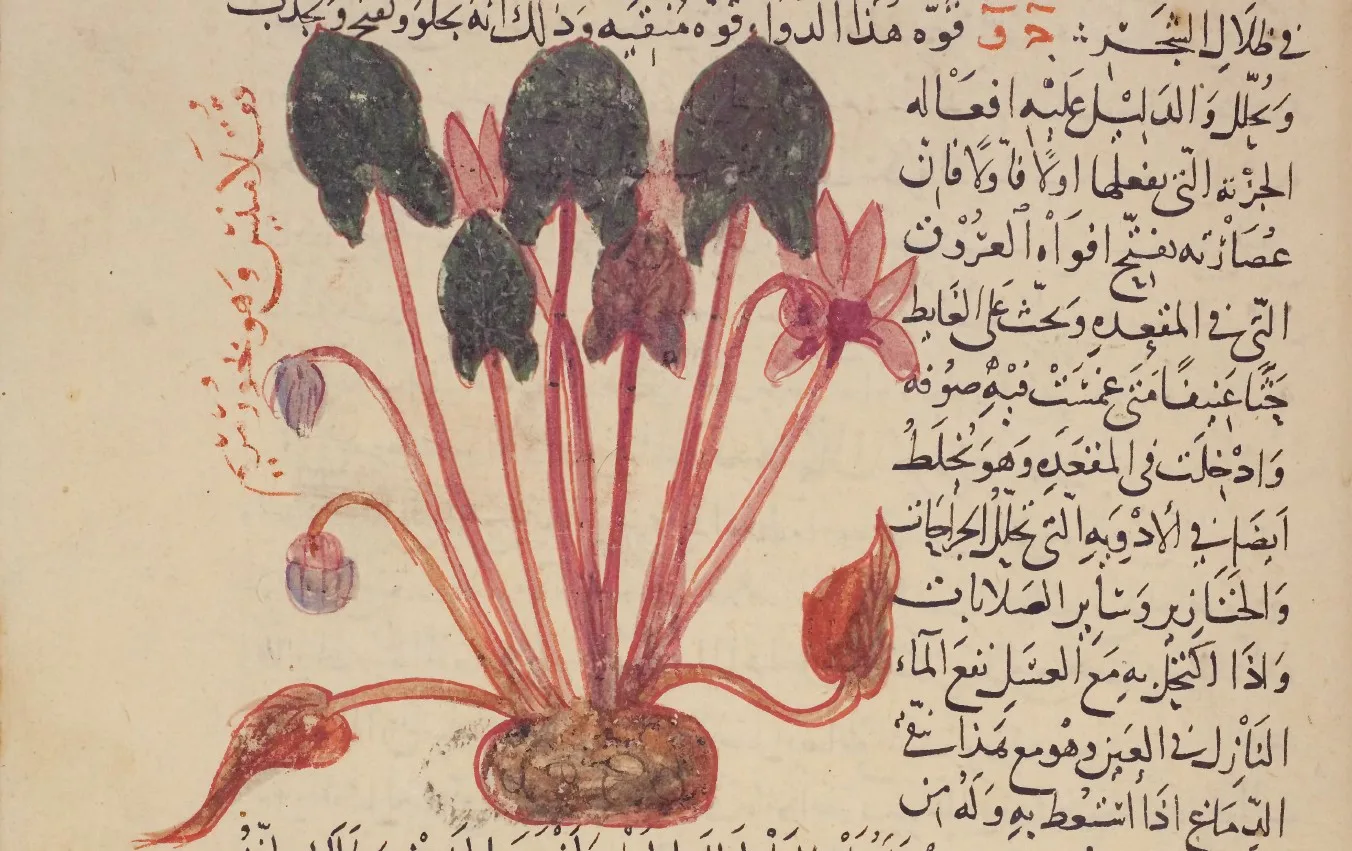 في ظلال الشجر ؞ قوة هذا الدواء قوة منقيه وذلك انه يجلو ويفتح ويجذب
ويحلل والدليل عليه افعاله
الجزئه التي يفعلها اولا فاولا فان
عصارته يفتح افواه العروق
التي في المقعده ويحث على الغايط
حثا عنيفا متى غمست فيه صوفه
وادخلت في المقعده وهو يخلط
ايضا في الادويه التي تحلل الجراحات
والخنازير وساير الصلابات
واذا اكتحل به مع العسل نفع الماء
النازل في العين وهو مع هذا ينقي
الدماغ اذا استعط به وله من
وهو بخور مريم